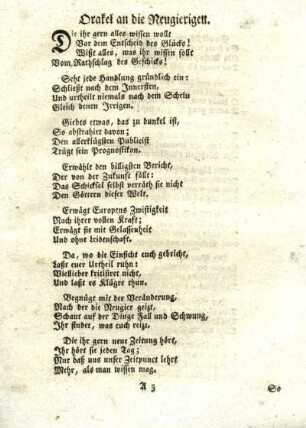 Orakel an die Neugierigen.
Die ihr gern alles wissen wollt
Vor dem Entscheid des Glücks!
Wißt alles, was ihr wissen sollt
Vom Rathschlag des Geschicks!
Seht jede Handlung gründlich ein:
Schließt nach dem Innersten,
Und urtheilt niemals nach dem Schein
Gleich denen Irrigen.
Giebts etwas, das zu dunkel ist,
So abstrahiret davon;
Den allerklügsten Publicist
Trügt sein Prognostikon.
Erwählt den billigsten Bericht,
Der von der Zukunft fällt:
Das Schicksel selbst verräth sie nicht
Den Göttern dieser Welt.
Erwägt Europens Zwistigkeit
Nach ihrer vollen Kraft;
Erwägt sie mit Gelassenheit
Und ohne Leidenschaft.
Da, wo die Einsicht euch gebricht,
Laßt euer Urtheil ruhn:
Vielleber kritisiret nicht,
Und laßt es Klügre thun.
Begnügt mit der Veränderung,
Nach der die Neugier geizt,
Schaut auf der Dinge Fall und Schwung,
Ihr findet, was euch reizt.
Die ihr gern neue Zeitung hört,
Ihr hört sie jeden Tag;
Nur daß uns unser Zeitpunct lehrt
Mehr, als man wissen mag.
A 3
So